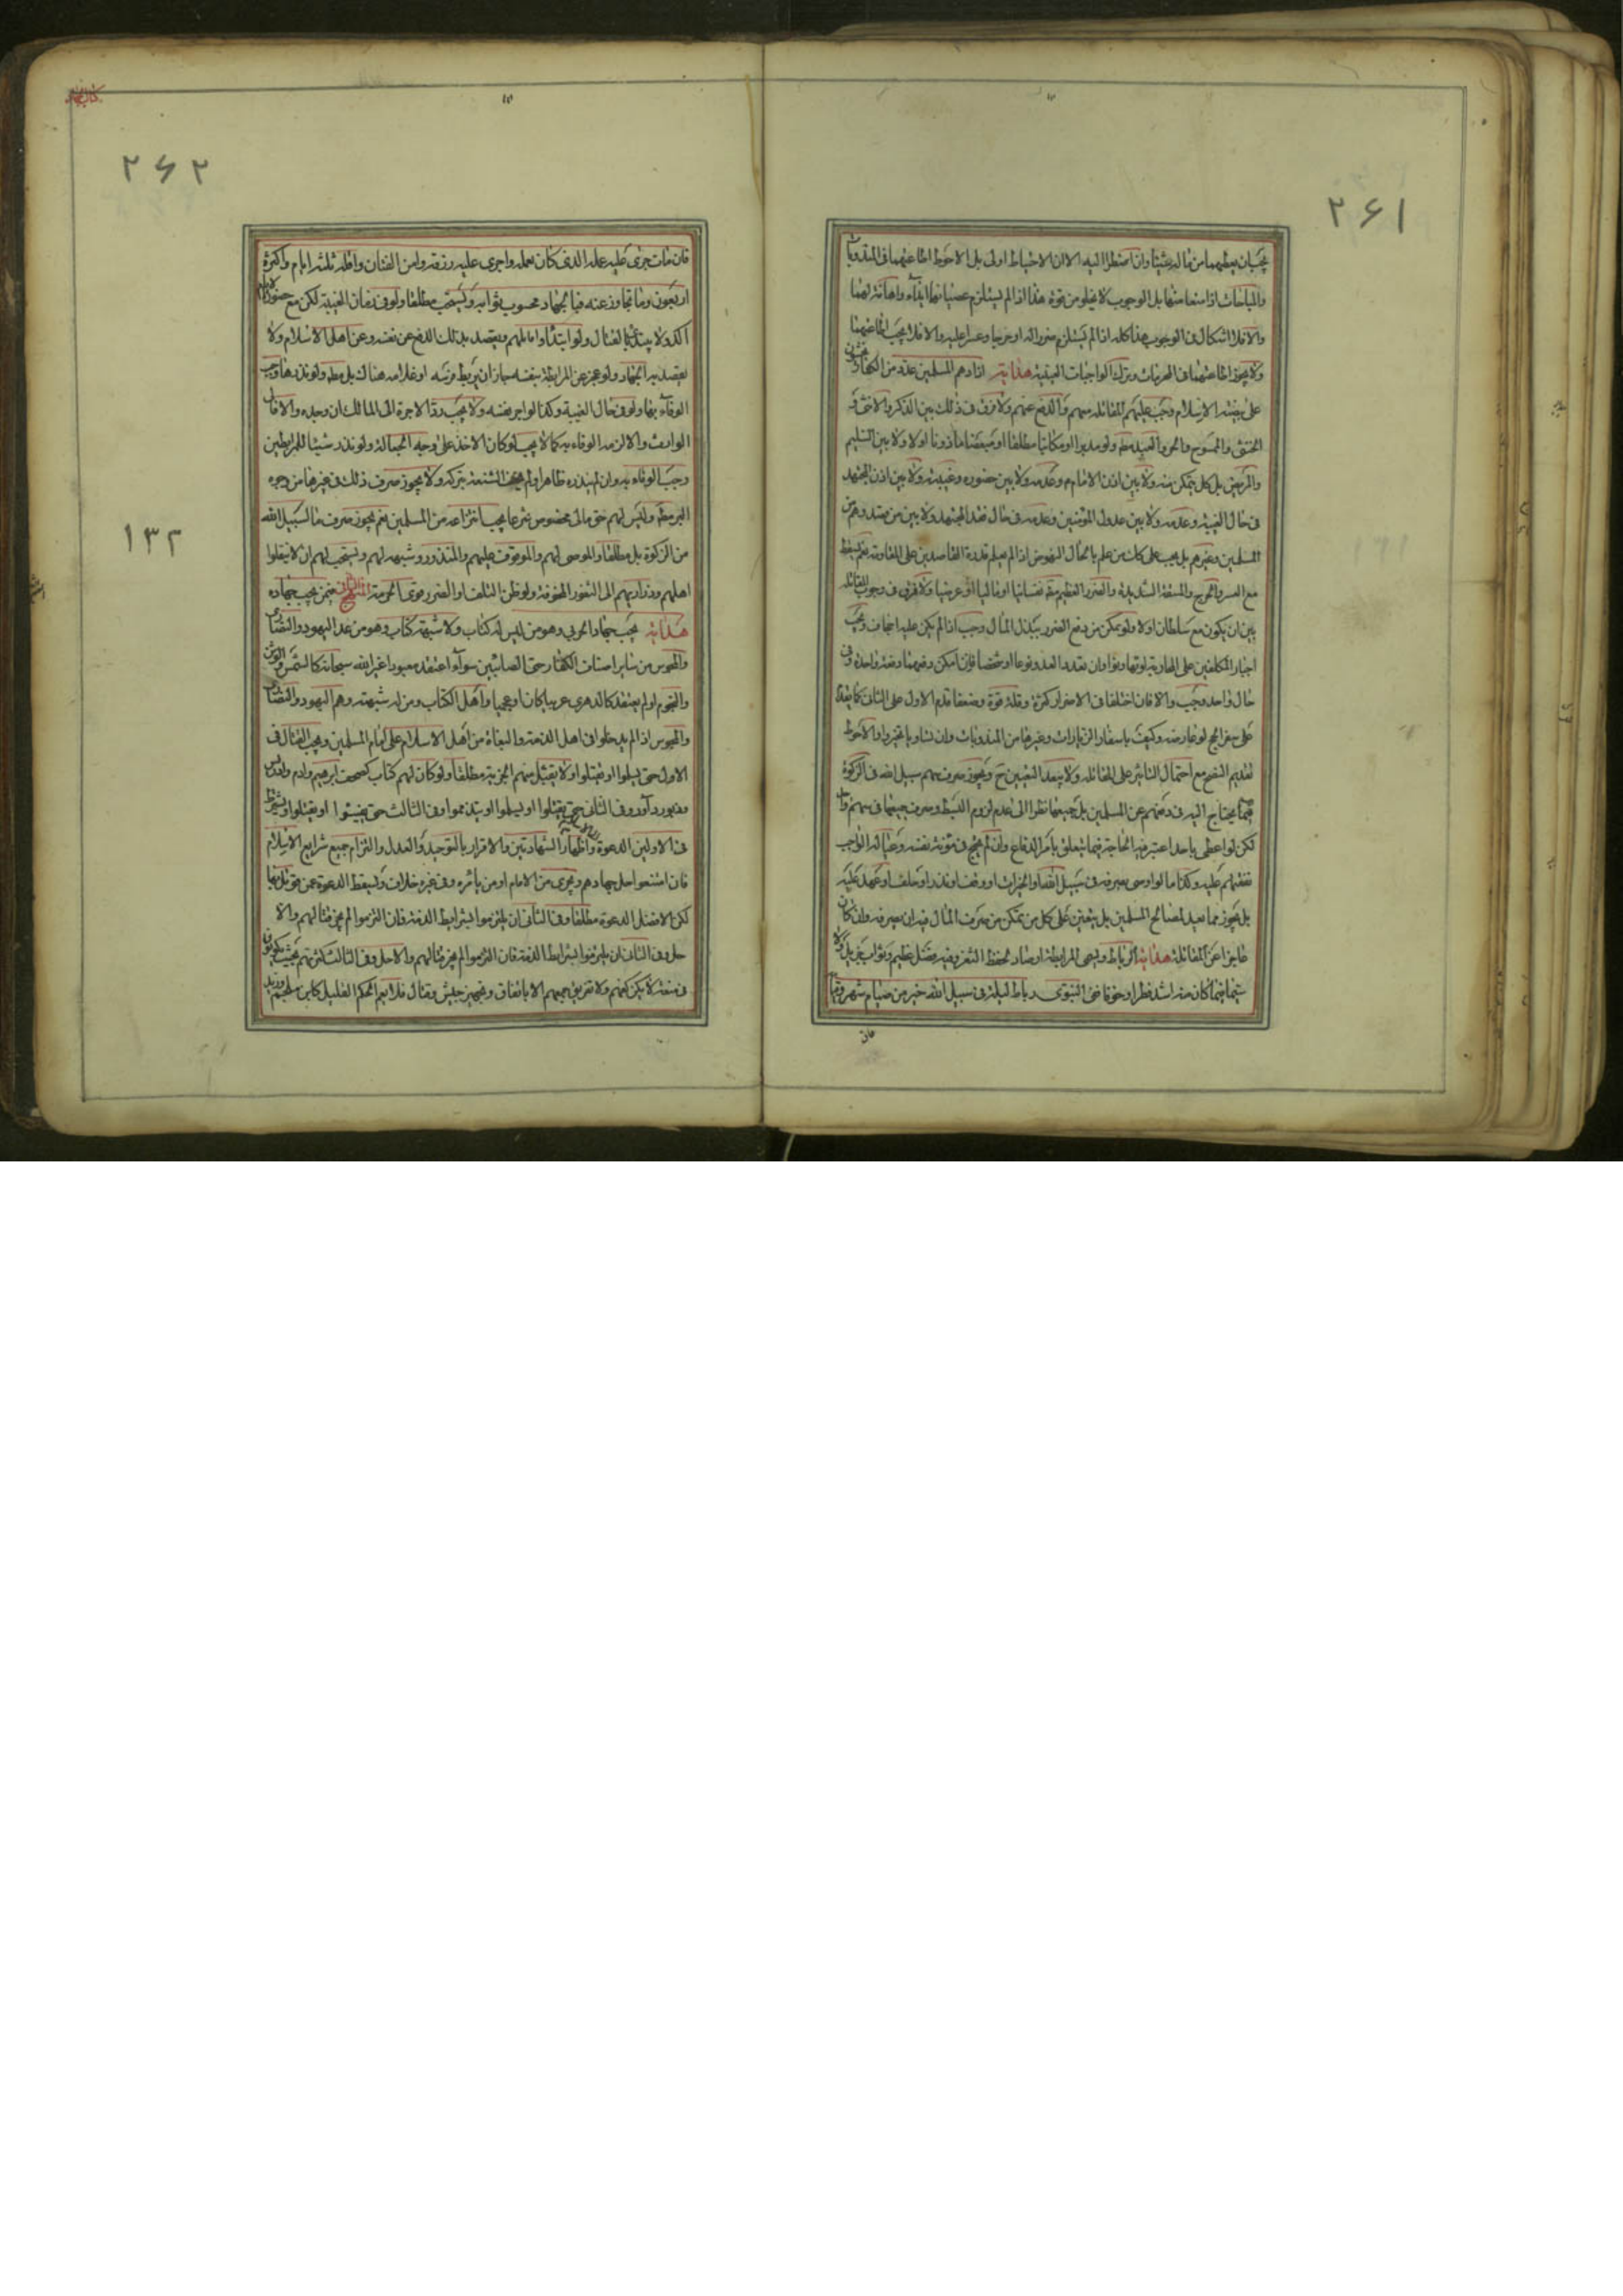 ٢۶١
يجب ان يعطيهما من ماله شيئا وان اضطرا اليه الا ان الاحتياط اولى بل الاحوط اطاعتهما فى المندوبات
والمباحات اذا منعا منها بل الوجوب لا يخلو من قوة هذا اذا لم يستلزم عصيانهما ايذاء واهانة لهما
والا فلا اشكال فى الوجوب هذا كله اذا لم يستلزم ضررا له او حرجا وعسرا عليه والا فلا يجب اطاعتهما
ولا يجوز اطاعتهما فى المحرمات وترك الواجبات العينية هداية اذا دهم المسلمين عدو من الكفار يخشى
على بيضة الاسلام وجب عليهم المقاتلة معهم والدفع عنهم ولا فرق فى ذلك بين الذكر والانثى و
الخنثى والممسوح والحر والعبد مطه ولو مدبرا او مكاتبا مطلقا او مبعضا ماذونا اولا ولا بين السليم
والمريض بل كل يتمكن منه ولا بين اذن الامام م وعدمه ولا بين حضوره وغيبته ولا بين اذن المجتهد
فى حال الغيبة وعدمه ولا بين عدول المؤمنين وعدمه فى حال فقد المجتهد ولا بين من قصدوهم من
المسلمين وغيرهم بل يجب على كل من علم بالحال النهوض اذا لم يعلم قدرة القاصدين على المقاومة نعم يسقط
مع العسر والحرج والمشقة الشديدة والضرر العظيم مطه نفسانيا او ماليا او عرضيا ولا فرق فى وجوب المقاتلة
بين ان يكون مع سلطان اولا ولو تمكن من دفع الضرر ببذل المال وجب اذا لم يكن عليه اجحاف ويجب
حال واحد وجب والا فان اختلفا فى الاضرار كثرة وقلة قوة وضعفا قدم الاول على الثانى كما يقدم
على سفر الحج لو عارضه وكيف باسفار الزيارات وغيرها من المندوبات وان تساويا تخيروا والاحوط
تقديم النفع مع احتمال التاثير على المقاتلة ولا يبعد التعيين ح ويجوز صرف سهم سبيل الله فى الزكوة
فيما يحتاج اليه فى دفعهم عن المسلمين بل جميعها نظرا الى عدم لزوم البسط وصرف جميعها فى سهم واحد
لكن لو اعطى باحد اعتبر فيه الحاجة فيما يتعلق بامر الدفاع وان لم يحتج فى مؤنة نفسه وعياله الواجب
نفقتهم عليه وكذا ما لو اوصى بصرفه فى سبيل الله او الخيرات او وقف او نذر او حلف او عهد عليه
بل يجوز مما يعد لمصالح المسلمين بل يتعين على كل من يتمكن من صرف المال فيه ان يصرفه وان كان
عاجزا عن المقاتلة هداية الرباط ويسمى المرابطة ارصاد لحفظ الثغر وفيه فضل عظيم وثواب جزيل ولا
سيما فيما كان منه اشد خطرا وخوفا ففى النبوى رباط ليلة فى سبيل الله خير من صيام شهر وقيامه
فان
٢۶٢
١٣٢
فان مات جرى عليه عمله الذى كان يعمله واجرى عليه رزقه وامن الفتان واقله ثلثة ايام واكثره
اربعون وما تجاوز عنه فيا لجهاد محسوب ثوابه ويستحب مطلقا ولو فى زمان الغيبة لكن مع حضور الامام
اكد ولا يبتدئ بالقتال ولو ابتدأوا قاتلهم ويقصد بذلك الدفع عن نفسه وعن اهل الاسلام ولا
يقصد به الجهاد ولو عجز عن المرابطة بنفسه جاز ان يربط فرسه او غلامه هناك بل مطه ولو نذرها وجب
الوفاء بها ولو فى حال الغيبة وكذا لو اجر نفسه ولا يجب رد الاجرة الى المالك ان وجده والا فالى
الوارث والا لزمه الوفاء به كما لا يجب لو كان الاخذ على وجه الجعالة ولو نذر شيئا للمرابطين
وجب الوفاء به وان لم ينذره ظاهرا ولم يخف الشنعة بتركه ولا يجوز صرف ذلك فى غيرها من وجوه
البر مطه وليس لهم حق مالى مخصوص شرعا يجب انتزاعه من المسلمين نعم يجوز صرف مال سبيل الله
من الزكوة بل مطلقا والموصى لهم والموقوف عليهم والمنذور وشبهه لهم ويستحب لهم ان لا ينقلوا
اهلهم وذراريهم الى الثغور المخوفة ولو ظن التلف او الضرر قوى الحرمة المنهج الثانى فيمن يجب جهاده
هداية يجب جهاد الحربى وهو من ليس له كتاب ولا شبهة كتاب وهو من عدا اليهود والنصارى
والمجوس من ساير اصناف الكفار حتى الصابئين سواء اعتقد معبودا غير الله سبحانه كالشمس والوثن
والنجوم او لم يعتقد كالدهرى عربيا كان او عجميا واهل الكتاب ومن له شبهته وهم اليهود والنصارى
والمجوس اذا لم يدخلوا فى اهل الذمة والبغاة من اهل الاسلام على امام المسلمين ويجب القتال فى
الاول حتى يسلوا او يقتلوا ولا يقبل منهم الجزية مطلقا ولو كان لهم كتاب كصحف ابرهيم وادم وادريس
وزبور داود وفى الثانى حتى يقتلوا او يسلموا او يتذمموا وفى الثالث حتى يفيئوا او يقتلوا ويشترط
فى الاولين الدعوة واظهار الشهادتين والاقرار بالتوحيد والعدل والتزام جميع شرايع الاسلام
فان امتنعوا حل جهادهم ويجرى من الامام او من يامره وفى غيره خلاف ويسقط الدعوة عمن قوتل بها
لكن الافضل الدعوة مطلقا وفى الثانى ان يلتزموا بشرايط الذمة فان التزموا لم يجز قتالهم والا
حل وفى الثانى ان يلتزموا بشرايط الذمة فان التزموا لم يجز قتالهم والا حل وفى الثالث كثرتهم بحيث يكونون
فى منعة لا يمكن كفهم ولا تفريق جمعهم الا باتفاق وتجهيز جيش وقتال فلا يعم الحكم القليل كابن ملجم